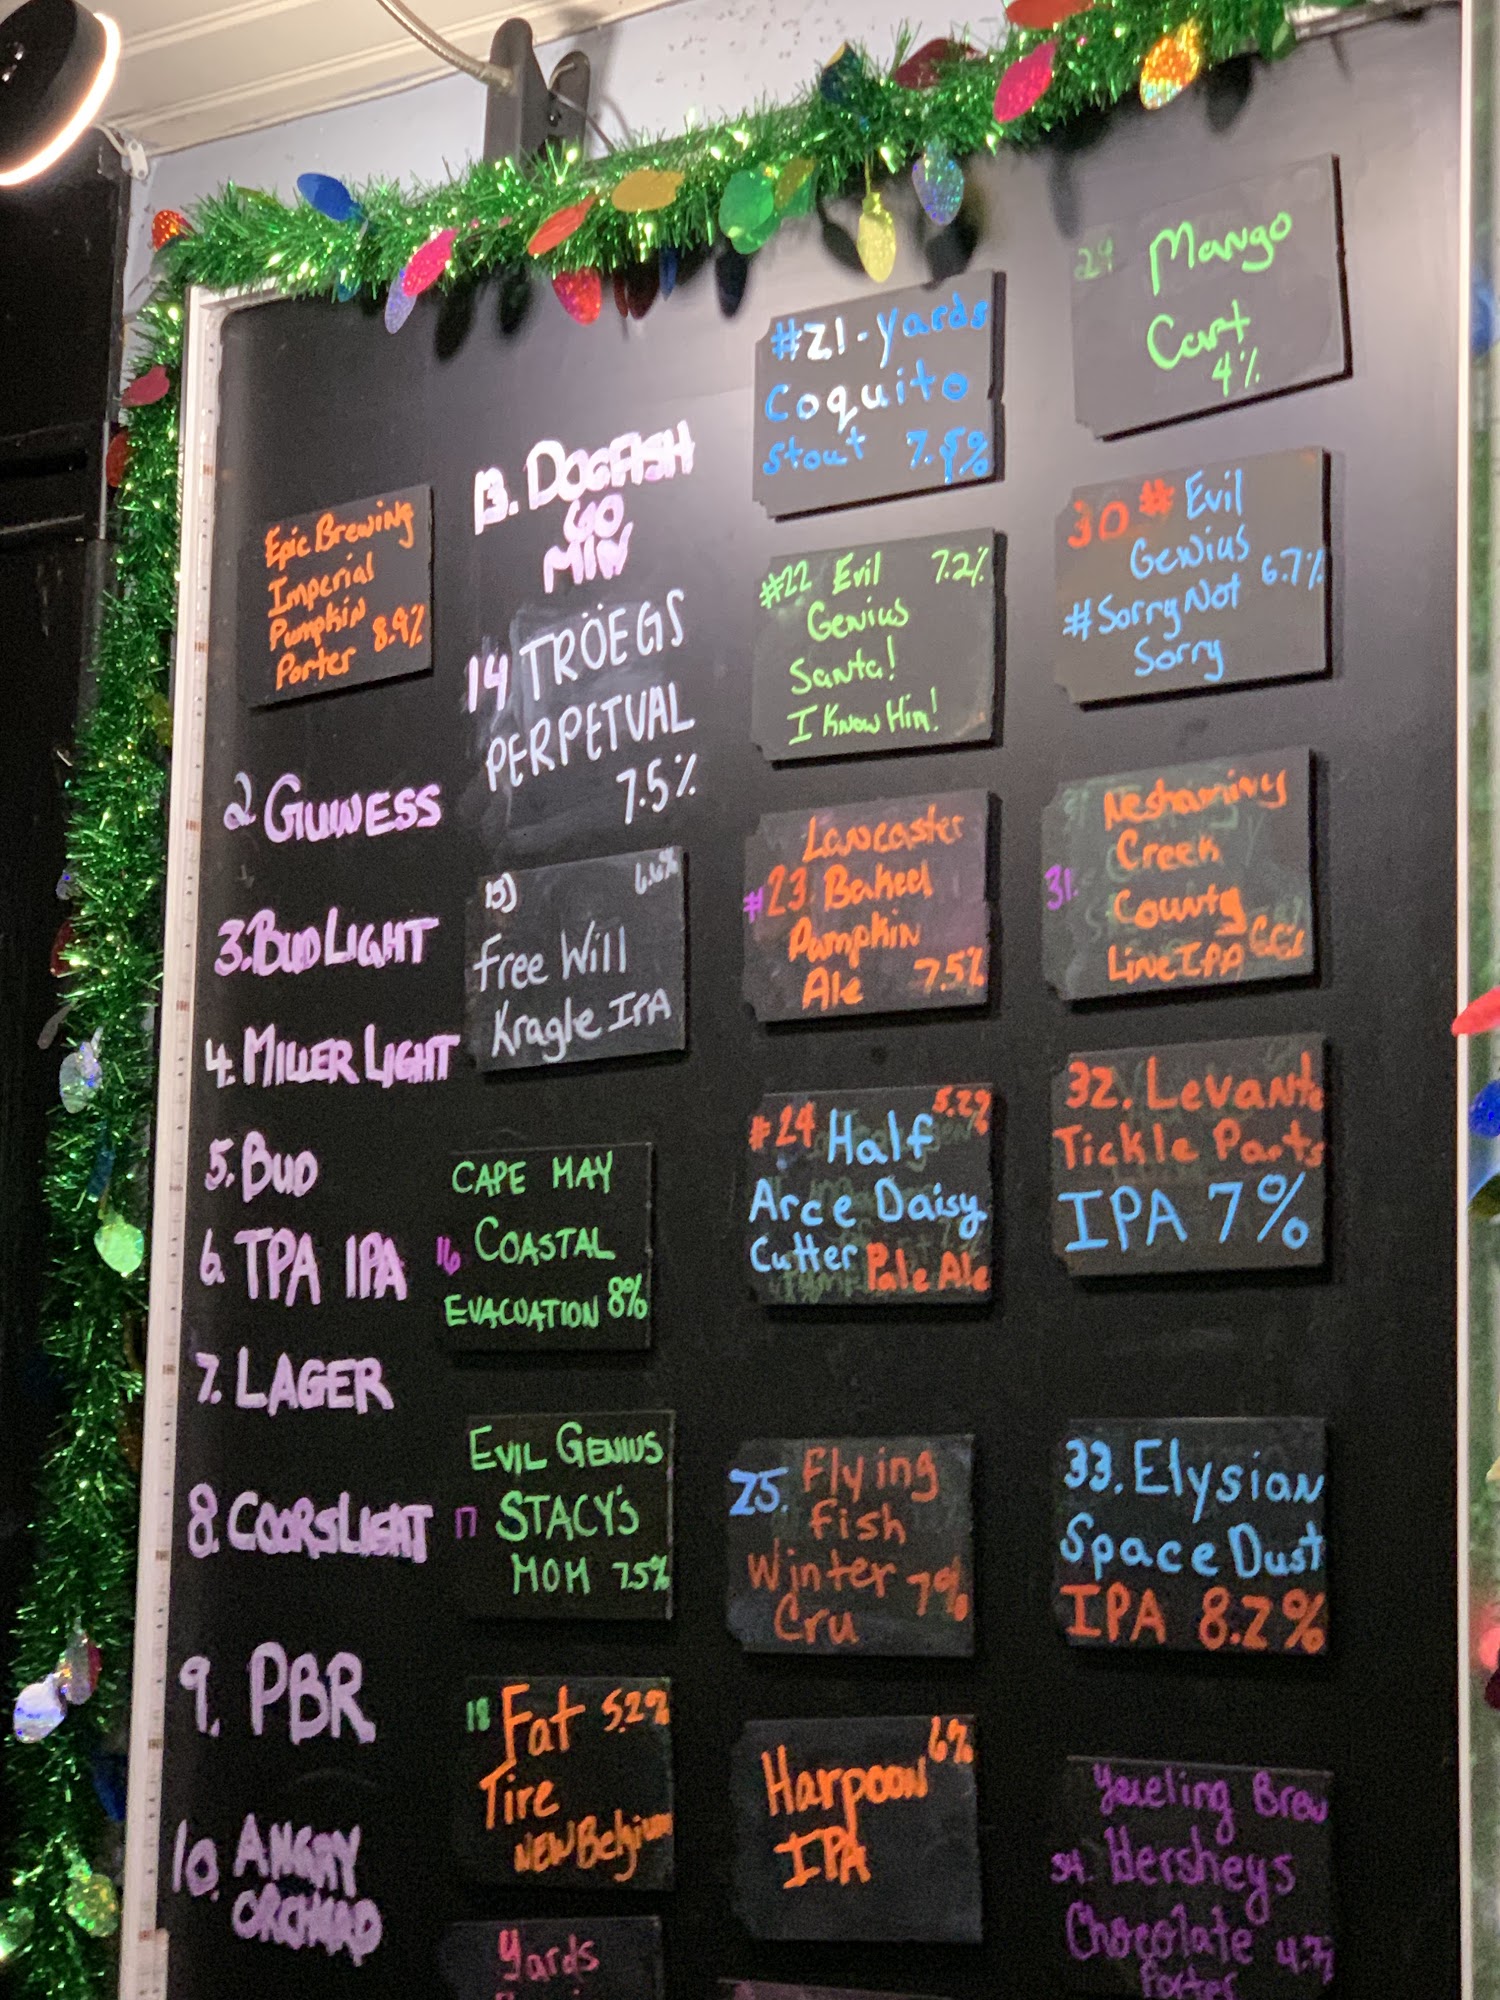 Epic Brewing
Imperial
Pumpkin
Porter 8.9%
2 GUINNESS
3. BUD LIGHT
4. MILLER LIGHT
5. BUD
6. TPA IPA
7. LAGER
8. COORS LIGHT
9. PBR
10. ANGRY
ORCHARD
13. DOGFISH
60
MIN
14 TRÖEGS
PERPETUAL
7.5%
15) 6.6%
Free Will
Kragle IPA
CAPE MAY
16 COASTAL
EVACUATION 8%
EVIL GENIUS
17 STACY'S
MOM 7.5%
18 Fat 5.2%
Tire
NEW Belgium
Yards
#21-Yards
Coquito
Stout 7.5%
#22 Evil 7.2%
Genius
Santa!
I Know Him!
Lancaster
#23. Baked
Pumpkin
Ale 7.5%
#24 Half 5.2%
Arce Daisy
Cutter Pale Ale
25. Flying
Fish
Winter 7%
Cru
Harpoon 6%
IPA
29 Mango
Cart
4%
30 # Evil
Genius 6.7%
#Sorry Not
Sorry
Neshaminy
Creek
31. County
Line IPA
32. Levante
Tickle Parts
IPA 7%
33. Elysian
Space Dust
IPA 8.2%
Yueling Brew
34. Hersheys
Chocolate 4.7%
Porter